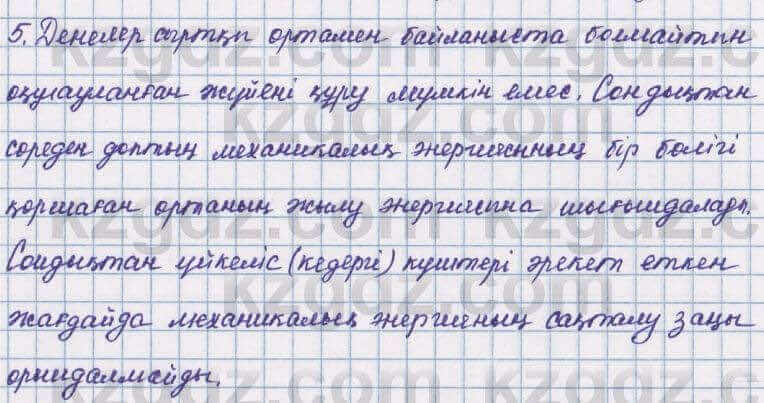 5. Денелер сыртқы ортамен байланыста болмайтын
оқшауланған жүйені құру мүмкін емес. Сондықтан
сөреден доптың механикалық энергиясының бір бөлігі
қоршаған ортаның жылу энергиясына шығындалады.
Сондықтан үйкеліс (кедергі) күштері әрекет еткен
жағдайда механикалық энергияның сақталу заңы
орындалмайды.